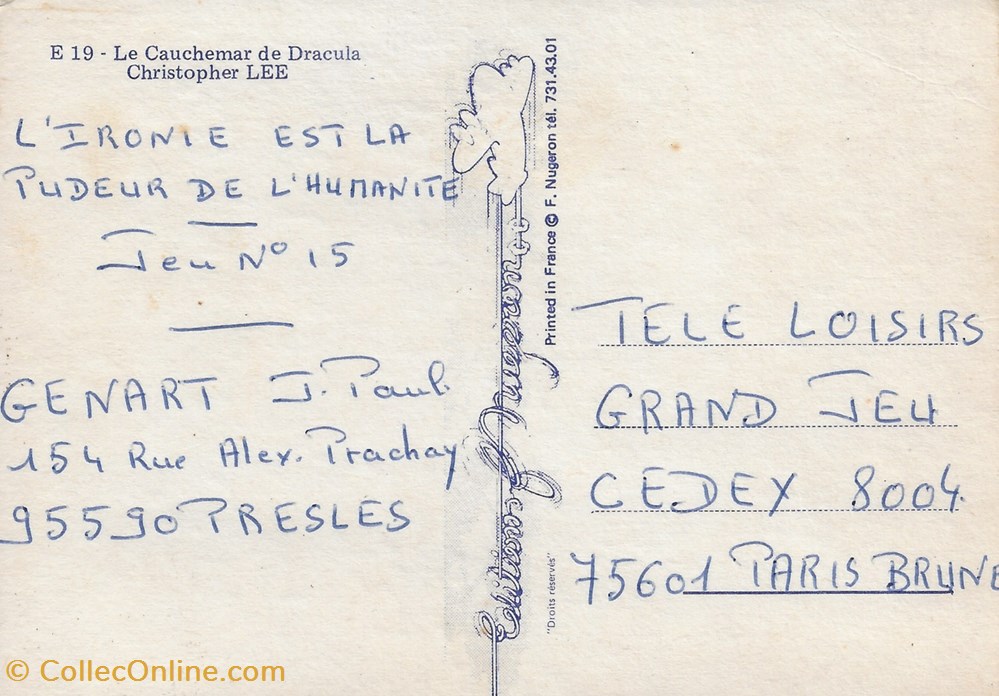 E 19 - Le Cauchemar de Dracula
Christopher LEE
L'IRONIE EST LA
PUDEUR DE L'HUMANITE
Jeu N° 15
GENART J. Paul.
154 Rue Alex. Prachay
95590 PRESLES
Editions F. Nugeron
"Droits réservés"
Printed in France © F. Nugeron tél. 731.43.01
TELE LOISIRS
GRAND JEU
CEDEX 8004
75601 PARIS BRUNE
© CollecOnline.com